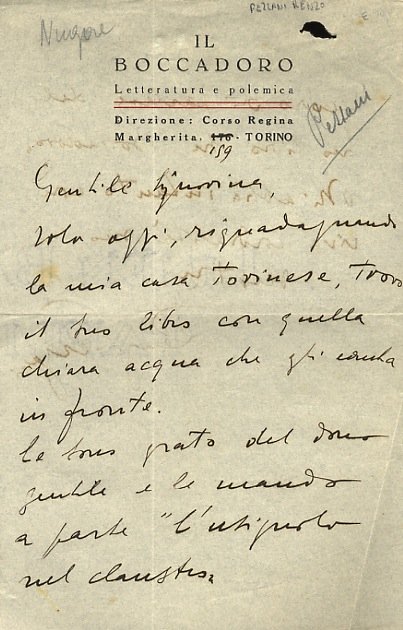 PEZZANI RENZO
Pezzani
IL
BOCCADORO
Letteratura e polemica
Direzione: Corso Regina
Margherita, 176 - TORINO
159
Gentile Signorina,
solo oggi, riguadagnando
la mia casa torinese, trovo
il suo libro con quella
chiara acqua che gli canta
in fronte.
Le sono grato del dono
gentile e le mando
a parte "L'usignolo
nel claustro"